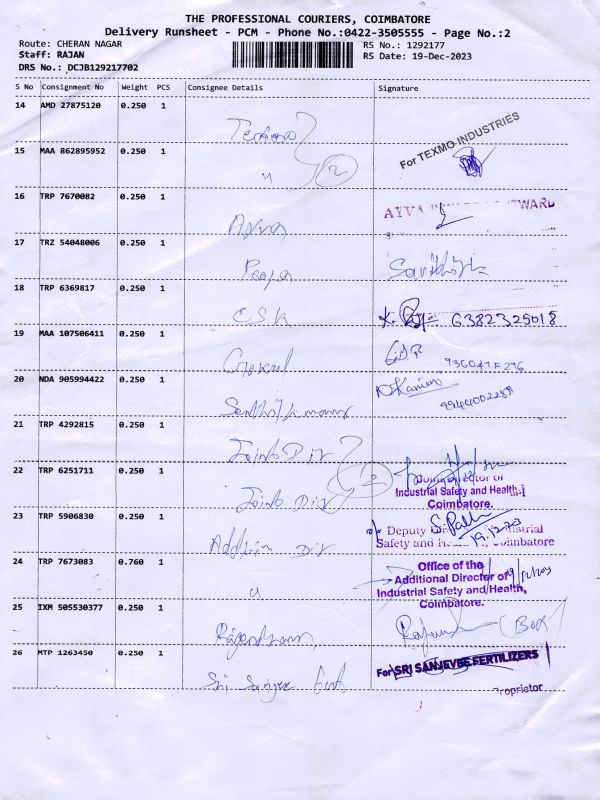 THE PROFESSIONAL COURIERS, COIMBATORE
Delivery Runsheet - PCM - Phone No.:0422-3505555 - Page No.:2
Route: CHERAN NAGAR RS No.: 1292177
Staff: RAJAN RS Date: 19-Dec-2023
DRS No.: DCJB129217702
S No Consignment No Weight PCS Consignee Details Signature
14 AMD 27875120 0.250 1
For TEXMO INDUSTRIES
15 MAA 862895952 0.250 1
" 2
16 TRP 7670082 0.250 1
17 TRZ 54048006 0.250 1
18 TRP 6369817 0.250 1
CSK 6382325018
19 MAA 107506411 0.250 1
Gokul
20 NDA 905994422 0.250 1
Senthil kumar
21 TRP 4292815 0.250 1
Joint Dir
22 TRP 6251711 0.250 1
Joint Dir
Joint Director of
Industrial Safety and Health-I
Coimbatore.
23 TRP 5906830 0.250 1
19.12.23
Safety and Health, Coimbatore
24 TRP 7673083 0.760 1
"
Office of the
Additional Director of
Industrial Safety and Health,
Coimbatore.
25 IXM 505530377 0.250 1
Rajendran (Box)
26 MTP 1263450 0.250 1
Sri Sanjee
For SRI SANJEVEE FERTILIZERS
Proprietor